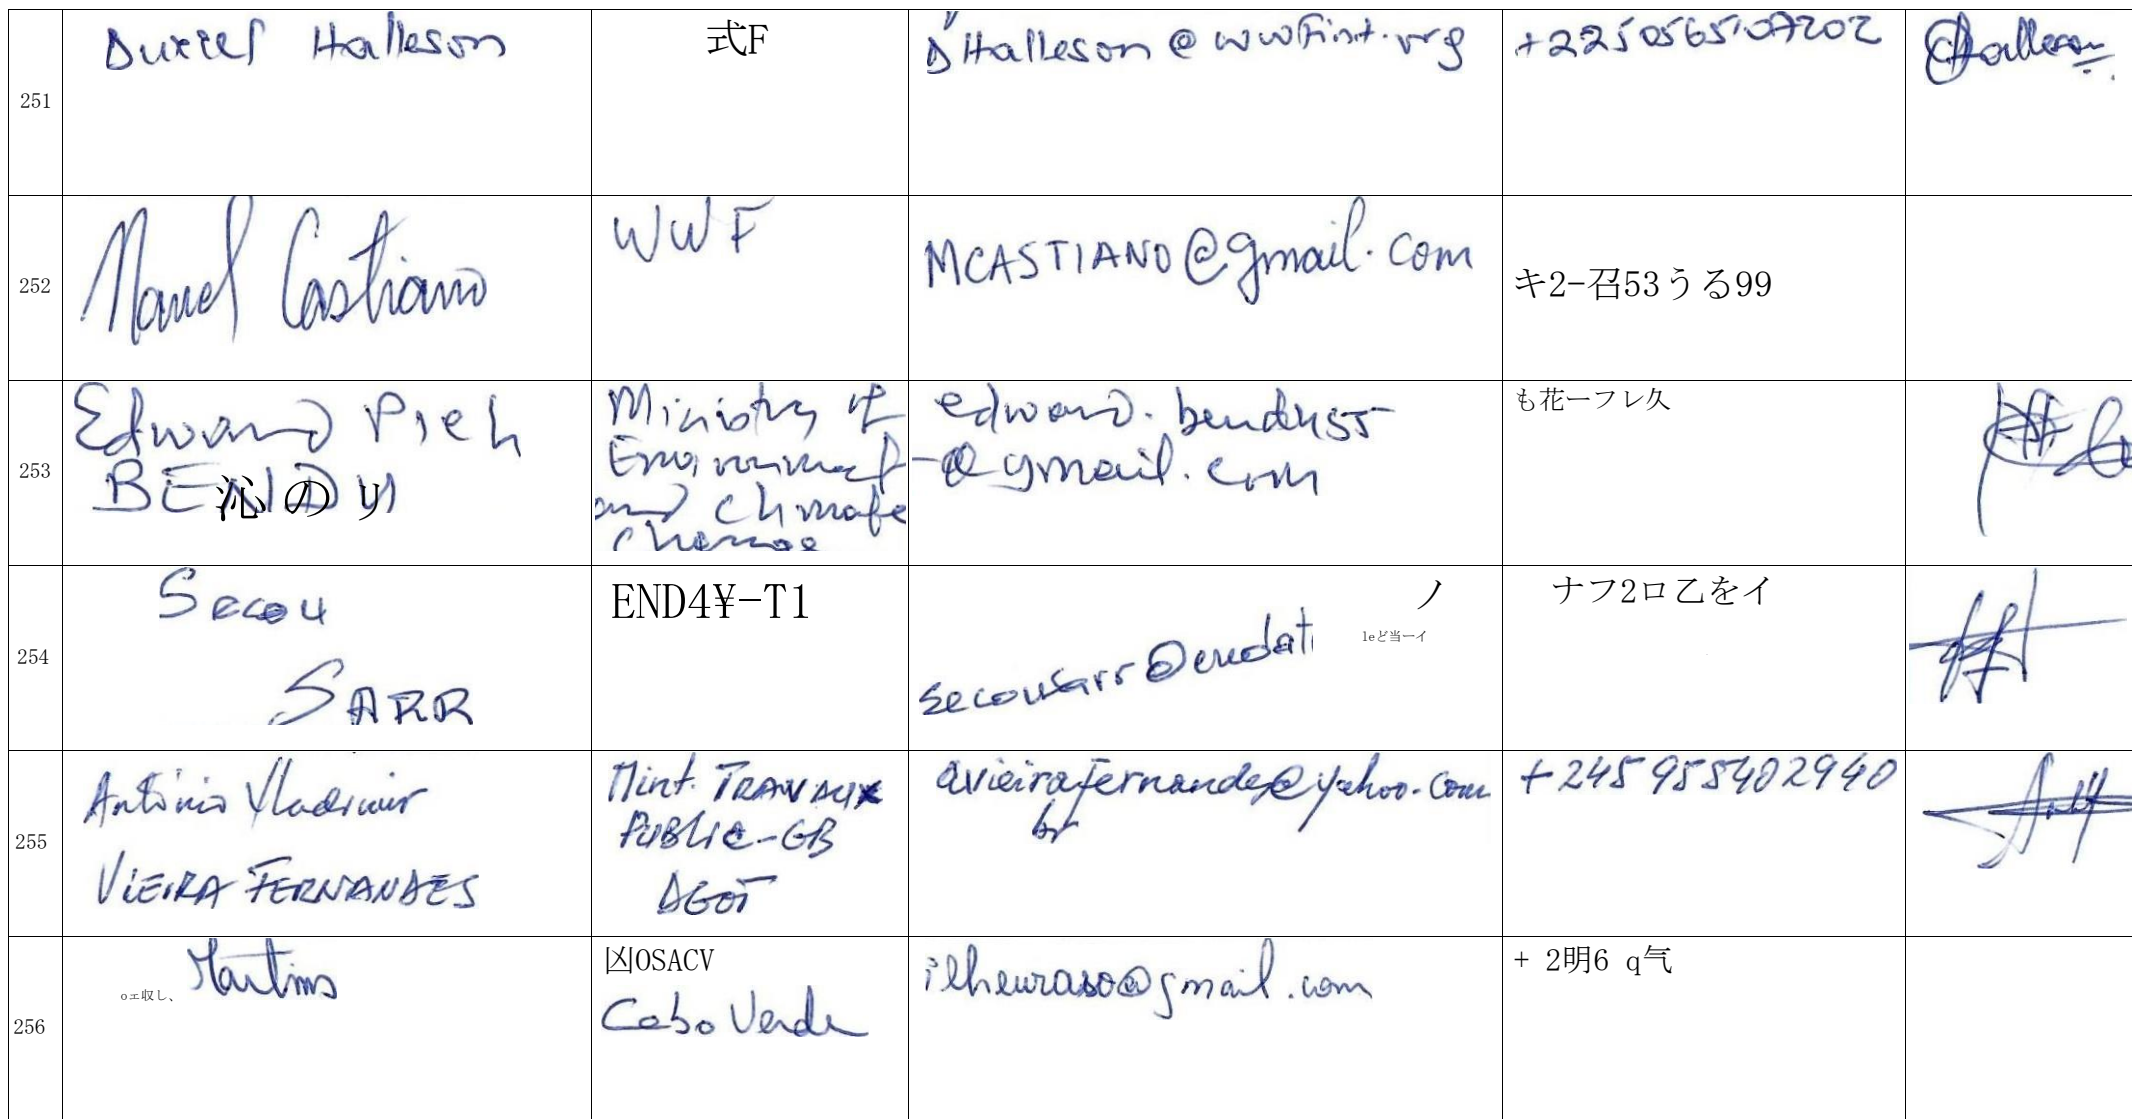 251
Halleson
式F
D'Halleson@wwfint.org
+2250565107202
252
Manuel Castiano
WWF
MCASTIANO@gmail.com
キ2-召53うる99
253
Edward Pieh
BENDU
沁のり
Ministry of
Environment
and Climate
Change
edward.bendu55
@gmail.com
も花ーフレ久
254
Secou
SARR
END4¥-T1
ノ
leど当ーイ
secousarr@endati
ナフ2ロ乙をイ
255
António Vladimir
VIEIRA FERNANDES
Mint. TRAVAUX
PUBLIC-GB
DGOT
avieirafernandes@yahoo.com
br
+245955402940
256
oェ収し、
Martins
凶OSACV
Cabo Verde
ilheuraso@gmail.com
+ 2明6 q气